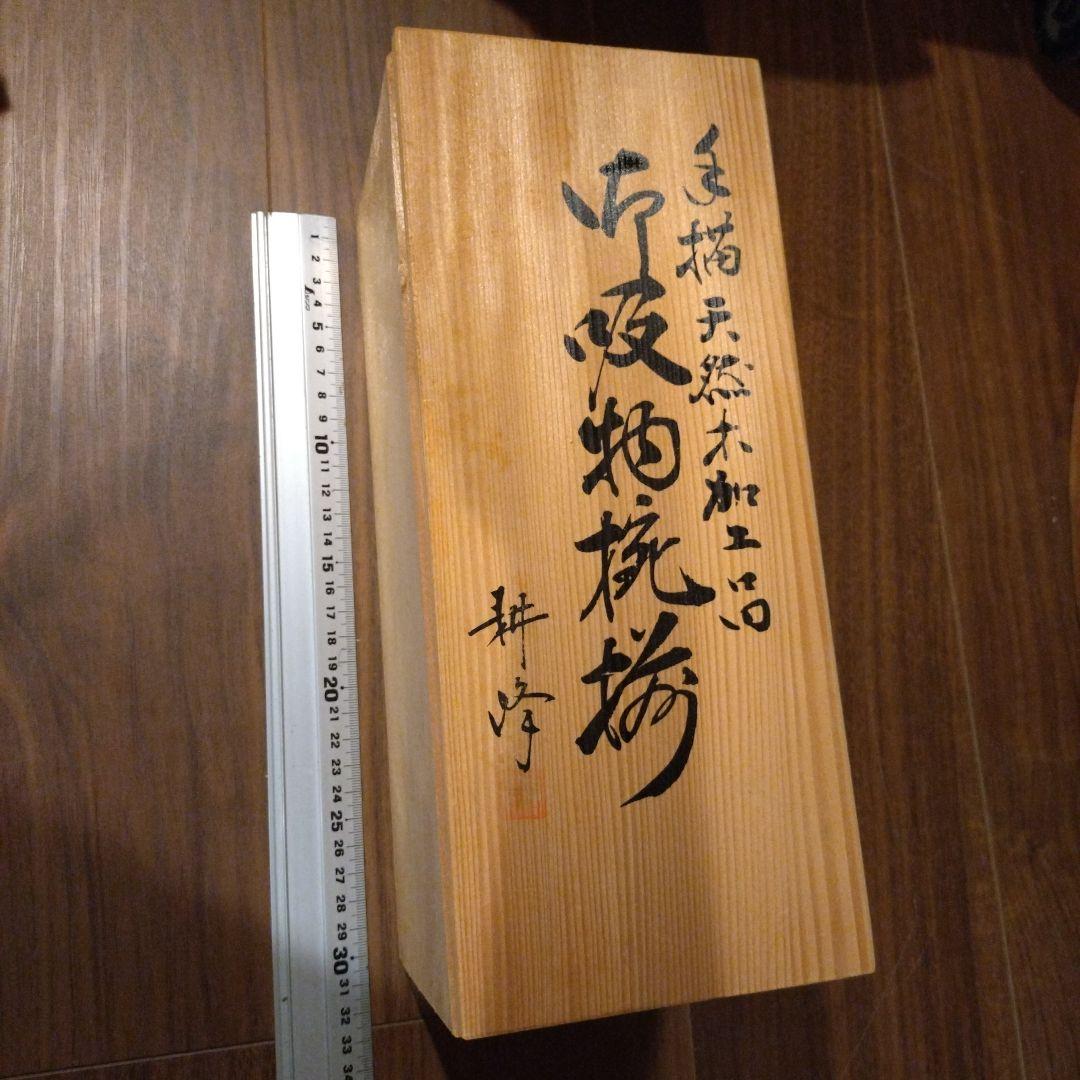 手描天然木加工品
御吸物椀揃
耕峰
1
2
3
4
5
6
7
8
9
10
11
12
13
14
15
16
17
18
19
20
21
22
23
24
25
26
27
28
29
30
31
32
33
34